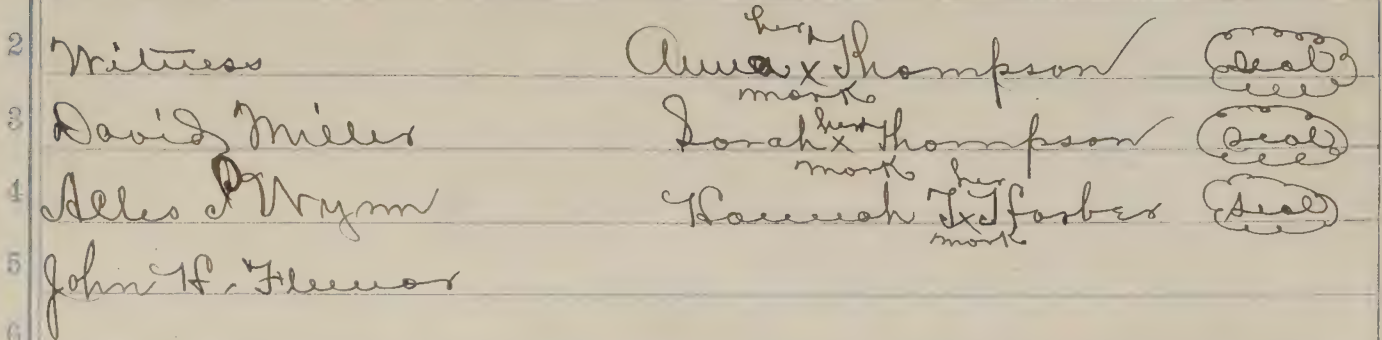 2 Witness Anna her x mark Thompson Seal
3 David Miller Sarah her x mark Thompson Seal
4 P Wynn Hannah her x mark Seal
5 John H.
6